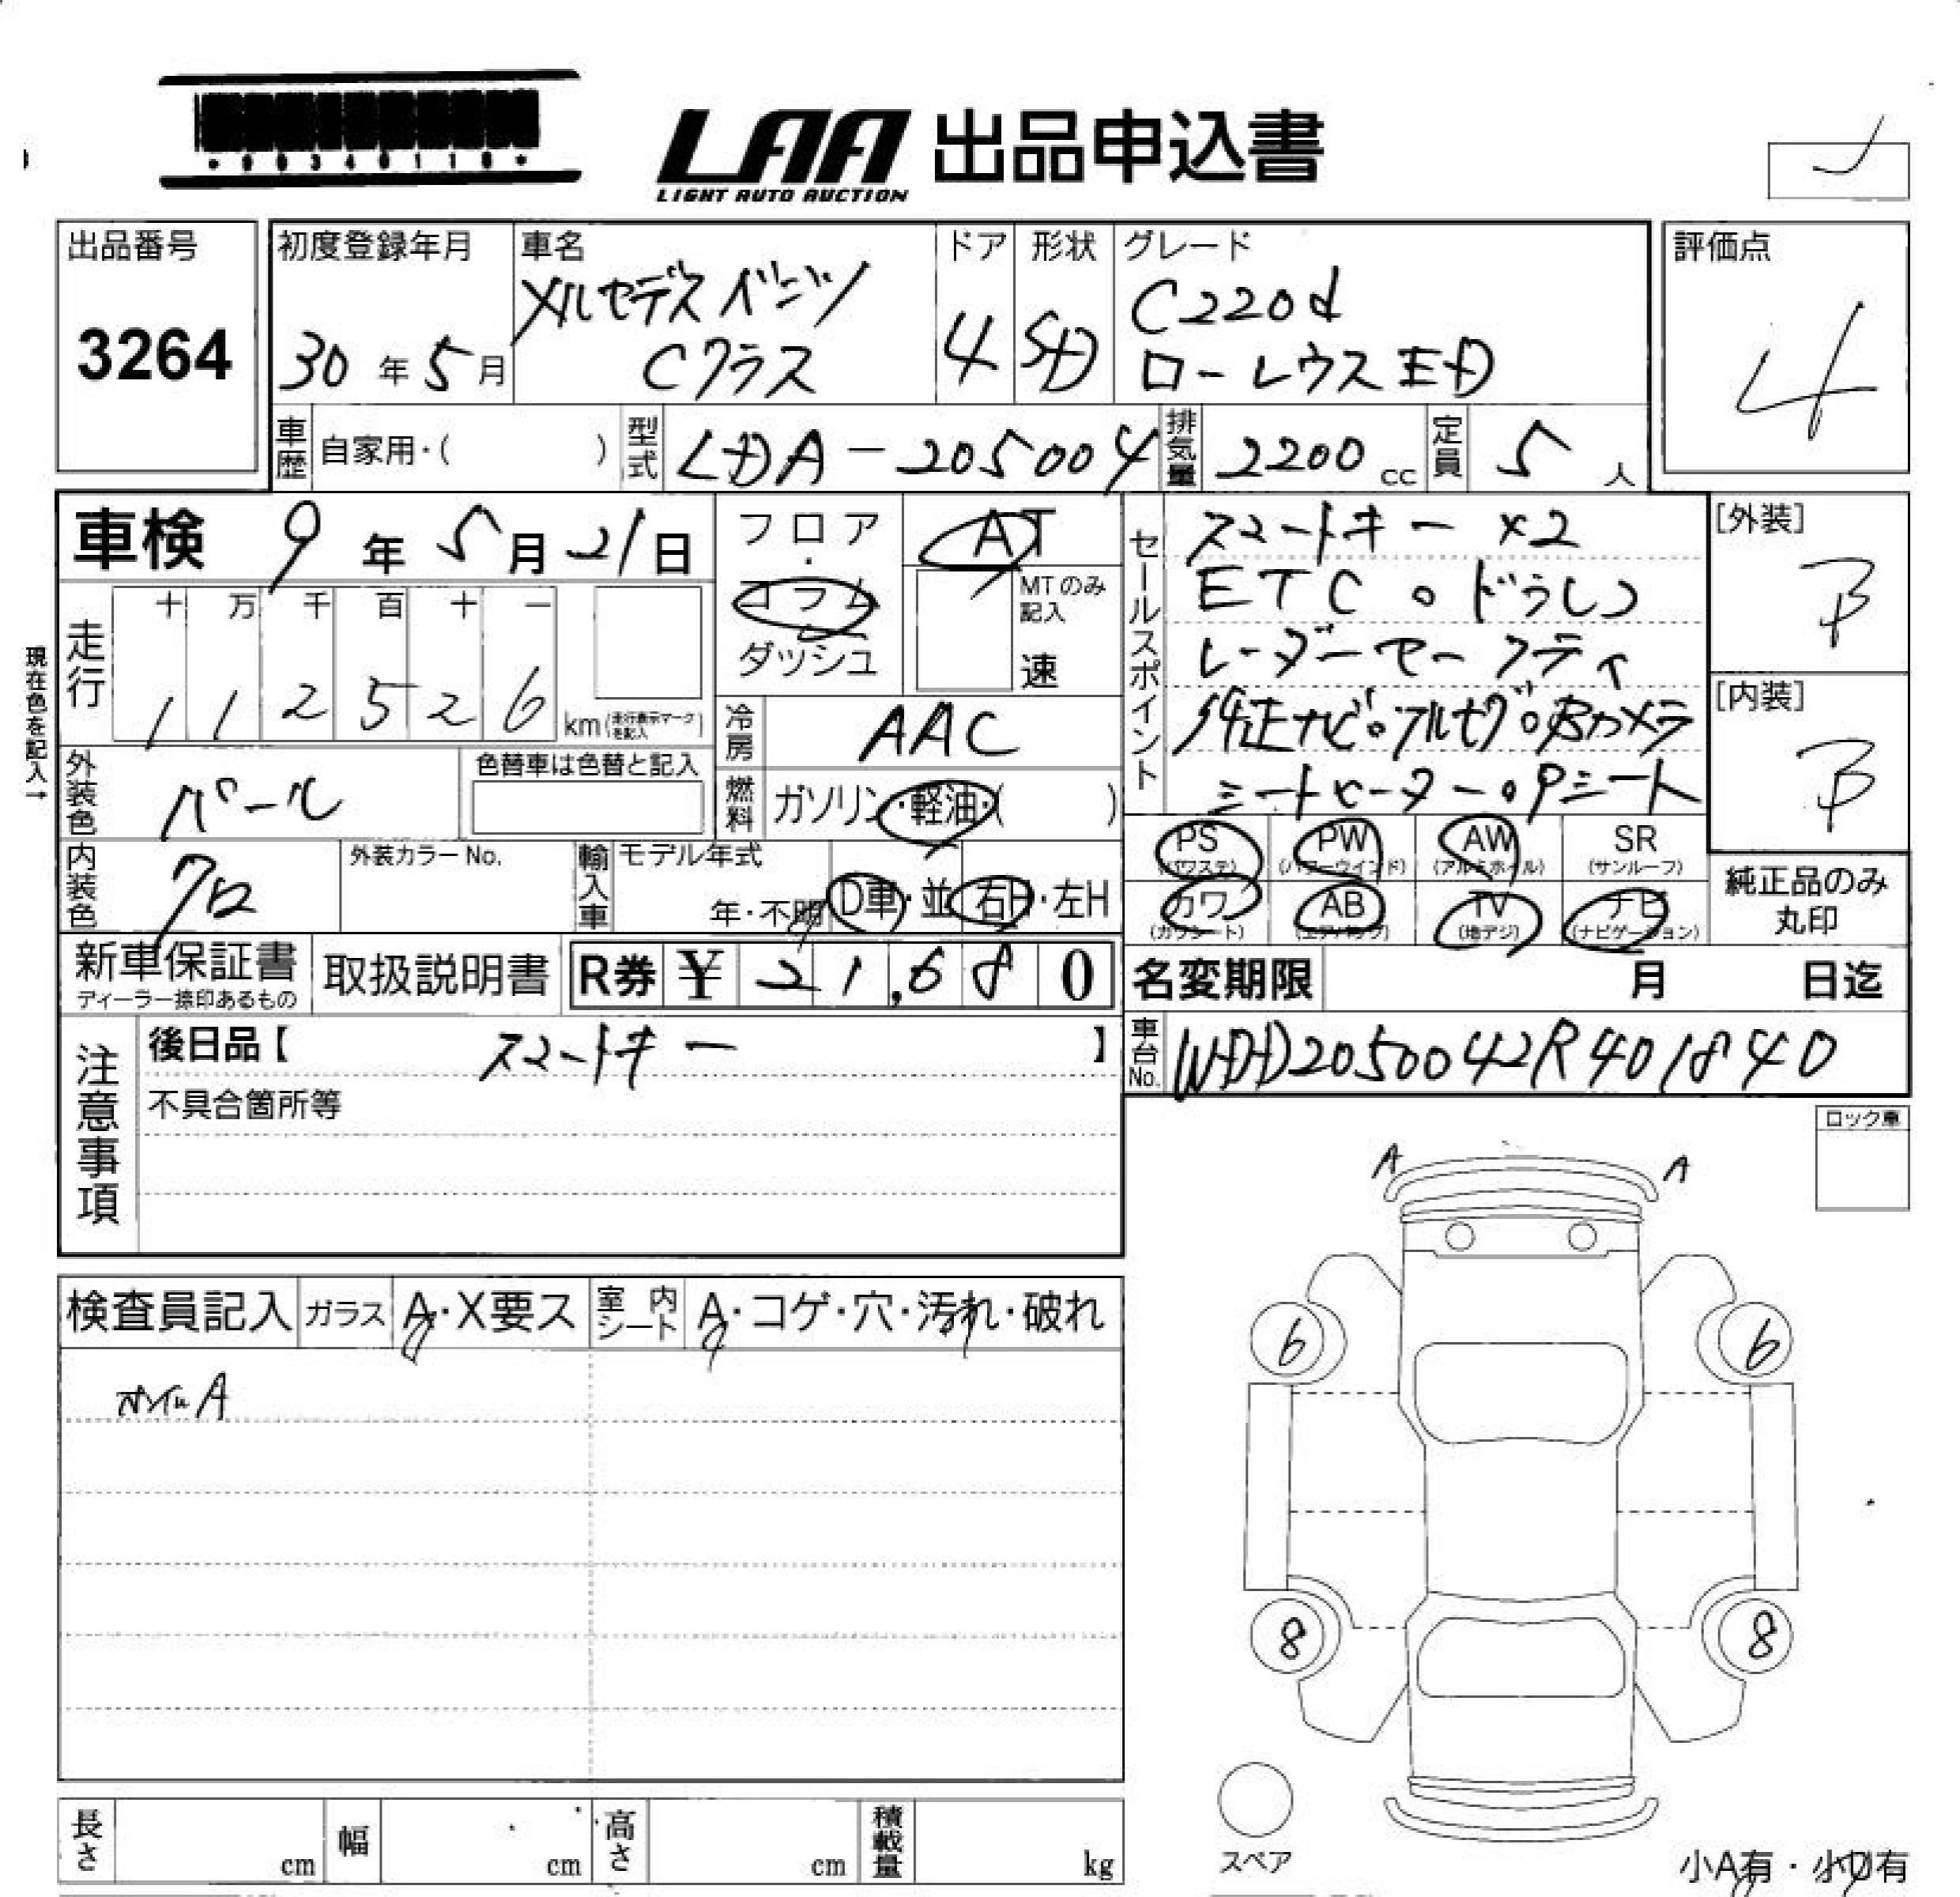 LAA 出品申込書
LIGHT AUTO AUCTION
出品番号
3264
初度登録年月
30年5月
車名
メルセデスベンツ
Cクラス
ドア
4
形状
SD
グレード
C220d
ローレウスED
評価点
4
車歴 自家用・( )
型式 LDA-205004
排気量 2200 cc
定員 5 人
車検 9年5月21日
フロア・コラム・ダッシュ
AT
MTのみ記入
速
セールスポイント
スマートキー×2
ETC。ドラレコ
レーダーセーフティ
純正ナビ。フルセグ。Bカメラ
シートヒーター。Pシート
[外装]
B
[内装]
B
現在色を記入→
走行
十 万 千 百 十 一
1 1 2 5 2 6 km(走行表示マークを記入)
冷房 AAC
外装色 パール
色替車は色替と記入
燃料 ガソリン・軽油・( )
内装色 クロ
外装カラーNo.
輸入車 モデル年式
年・不明 D車・並 右H・左H
PS (パワステ) PW (パワーウインド) AW (アルミホイル) SR (サンルーフ)
カワ (カワシート) AB (エアバック) TV (地デジ) ナビ (ナビゲーション)
純正品のみ丸印
新車保証書
ディーラー捺印あるもの
取扱説明書
R券 ¥ 21,680
名変期限 月 日迄
注意事項
後日品【 スマートキー 】
不具合箇所等
車台No. WDD2050042R401840
ロック車
A A
検査員記入 ガラス A・X要ス 室内シート A・コゲ・穴・汚れ・破れ
ホイルA
6 6
8 8
スペア
長さ cm 幅 cm 高さ cm 積載量 kg
小A有・小U有